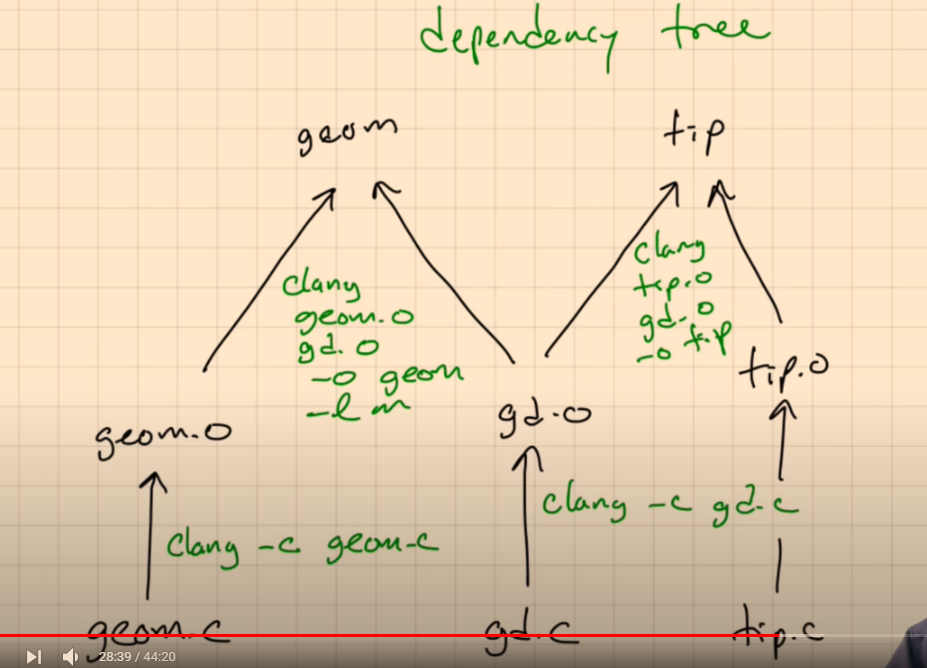 dependency tree
geom
tip
clang
geom.o
gd.o
-o geom
-lm
clang
tip.o
gd.o
-o tip
geom.o
gd.o
tip.o
clang -c geom.c
clang -c gd.c
geom.c
gd.c
tip.c
28:39 / 44:20